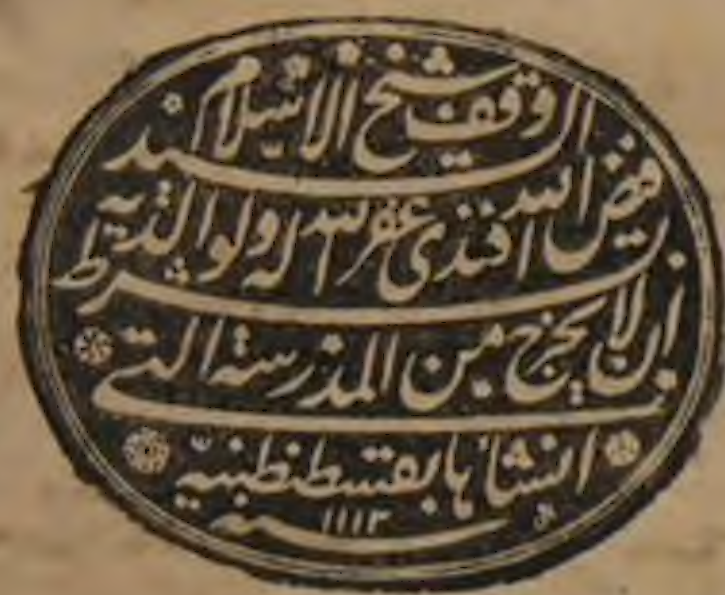 وقف شيخ الاسلام السيد
فيض الله افندى غفر الله له ولوالديه
بشرط ان لا يخرج من المدرسة التى
انشأها بقسطنطنيه
سنه ١١١٣